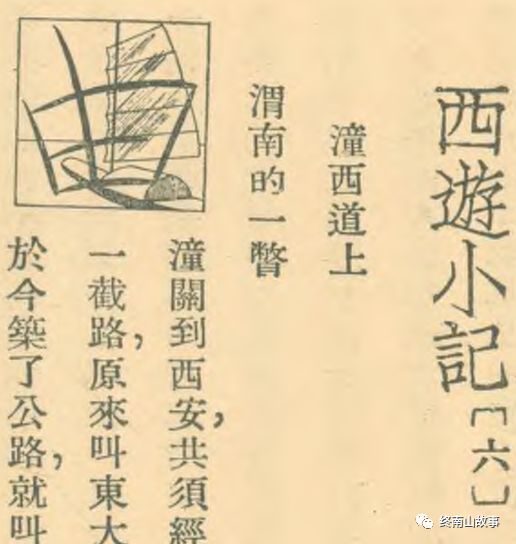 西遊小記〔六〕
潼西道上
渭南的一瞥
潼關到西安，共須經
一截路，原來叫東大
於今築了公路，就叫
终南山故事